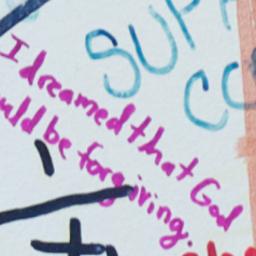 SUP
CO
I dreamed that God
uld be forgiving.